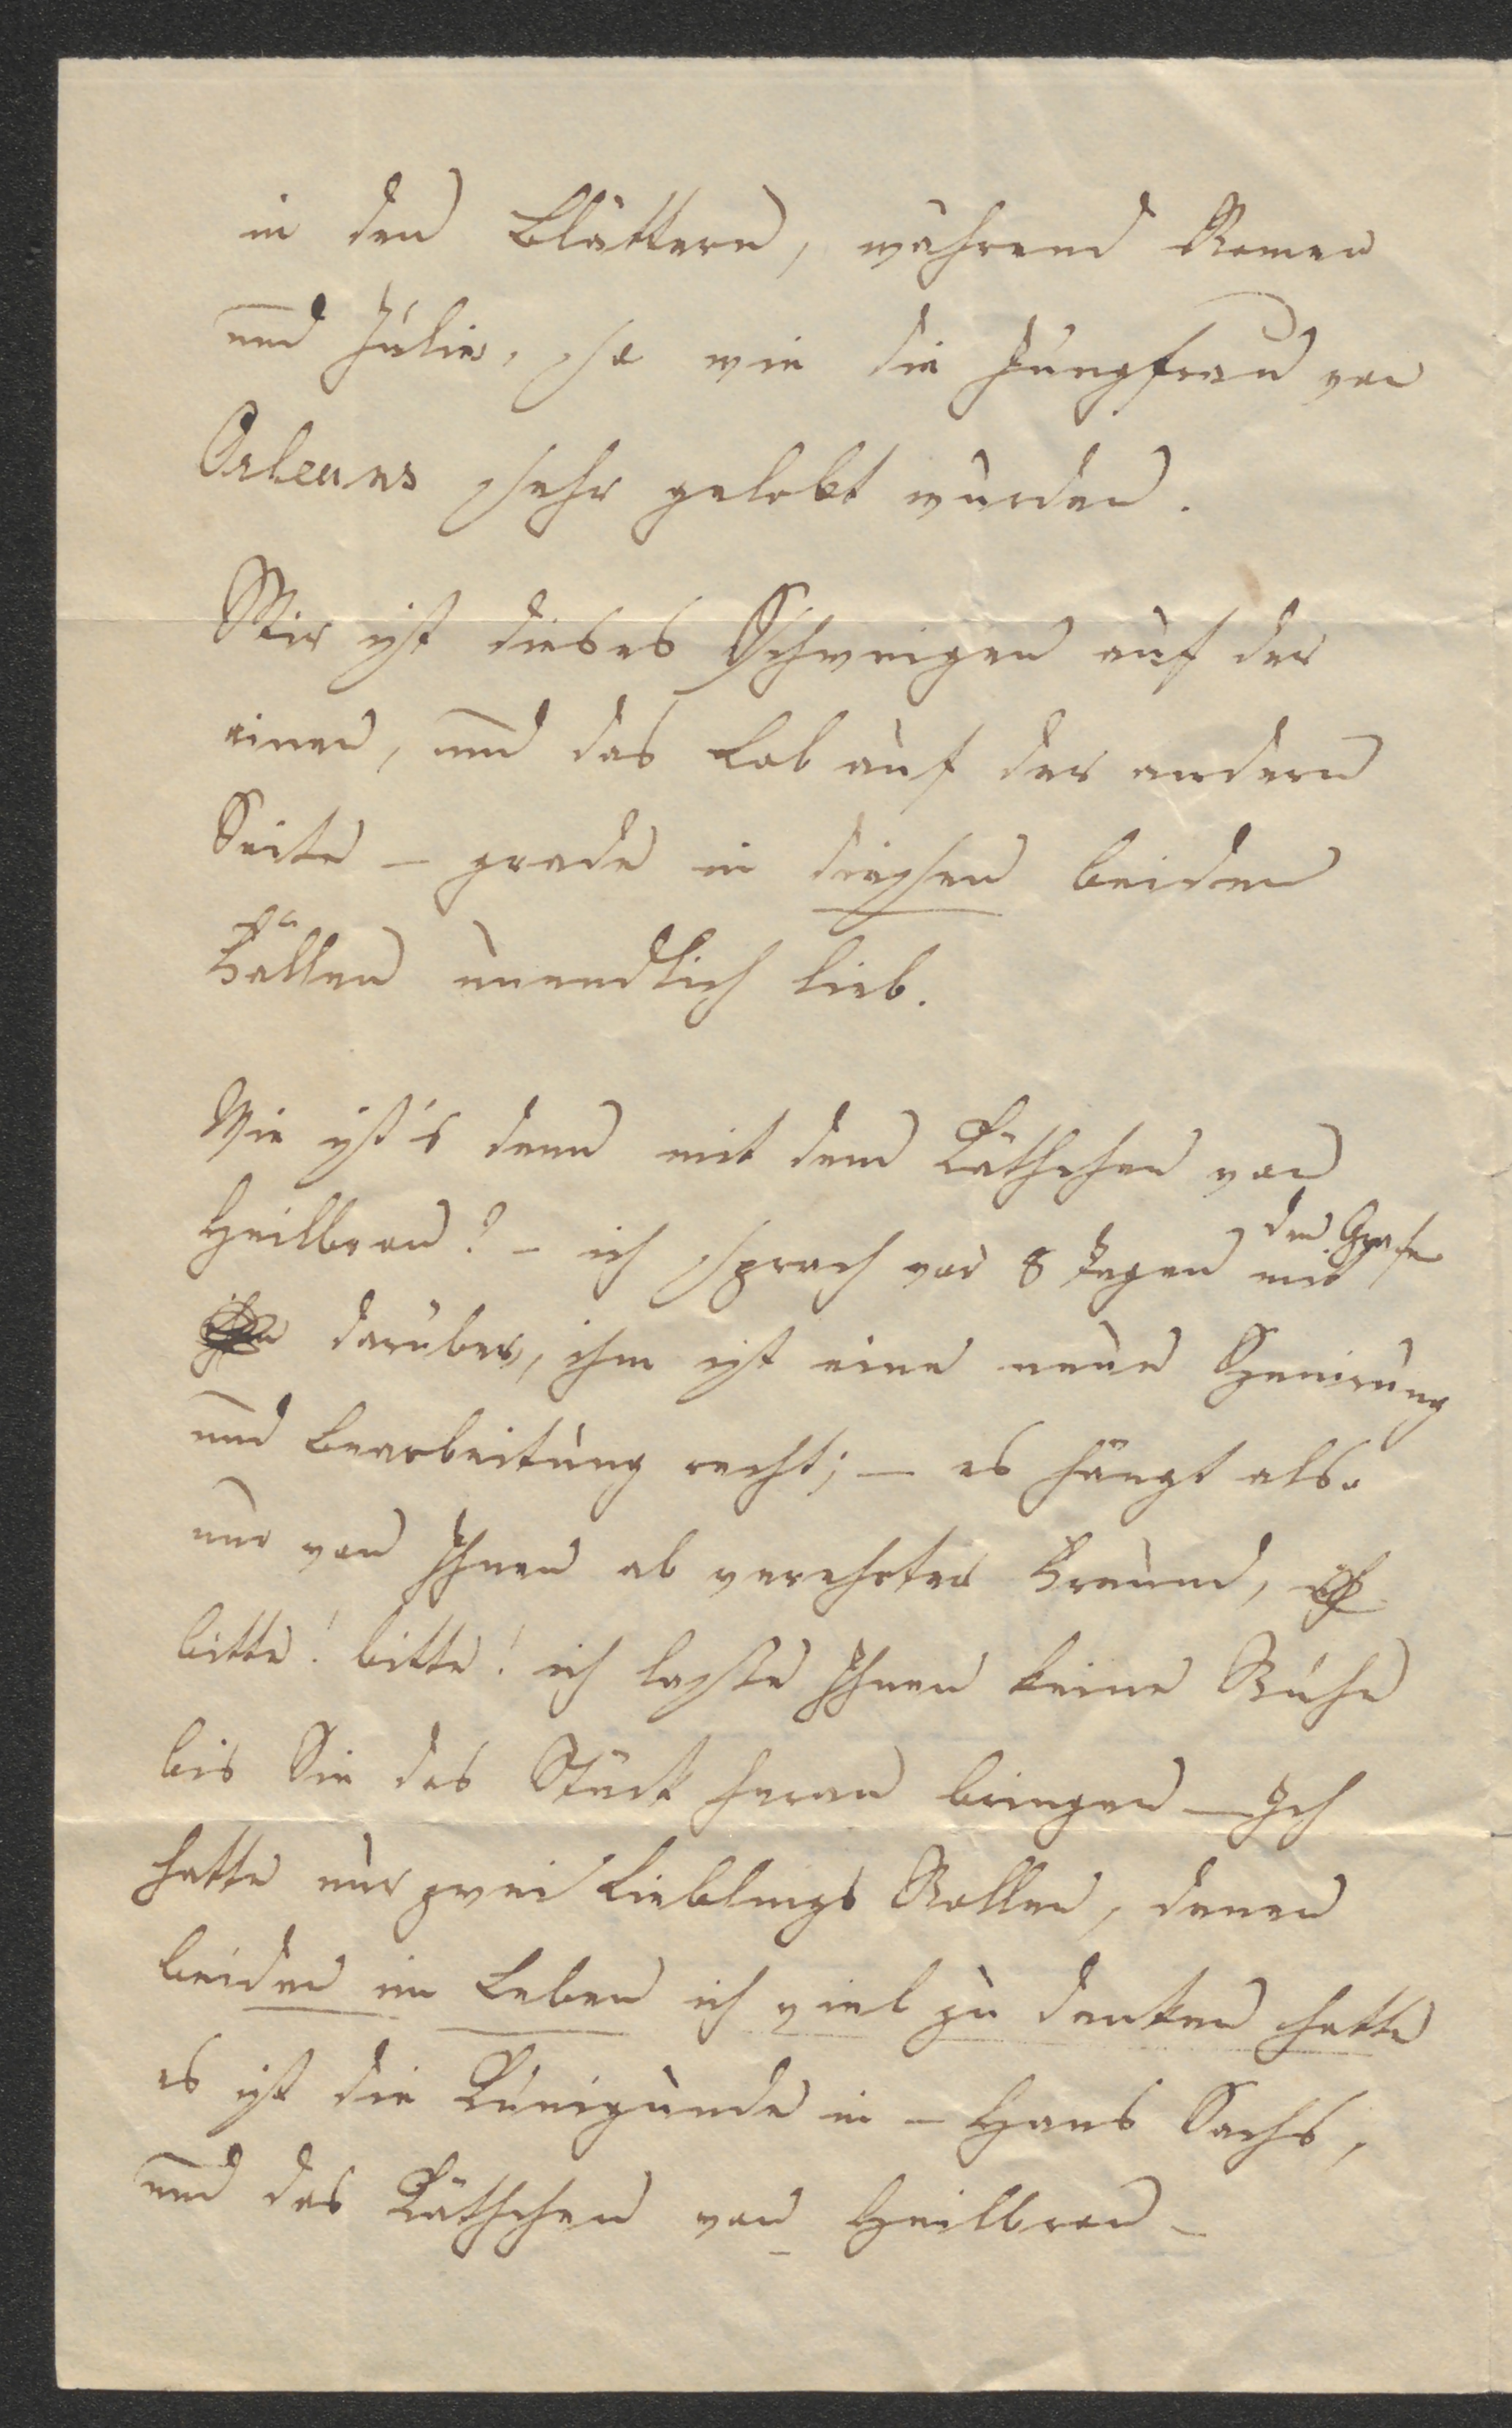 in den Blättern, während Romeo
und Julie, so wie die Jungfrau von
Orleans sehr gelobt wurden.
Mir ist dieses Schweigen auf der
einen, und das Lob auf der andern
Seite – grade in diesen beiden
Fällen unendlich lieb.
Wie ist's denn mit dem Käthchen von
Heilbron? – ich sprach vor 8 Tagen mit den Grafen
darüber, ihm ist eine neue Szenirung
und Bearbeitung recht; – es hängt also
nur von Ihnen ab verehrter Freund,
bitte! bitte! ich lasse Ihnen keine Ruhe
bis Sie das Stück heran bringen – Ich
hatte nur zwei Lieblings Rollen, denen
beiden im Leben ich viel zu danken hatte
es ist die Kunigunde in – Hans Sachs,
und das Käthchen von Heilbron –